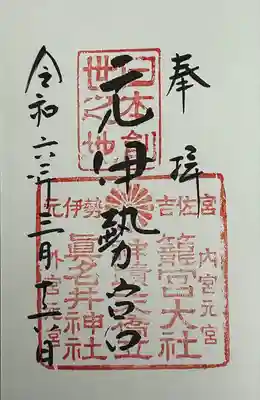 奉拝
元伊勢宮
令和六年三月十六日
日本創
世之地
元伊勢 吉佐宮
内宮元宮
籠宮大社
天橋立
眞名井神社
外宮